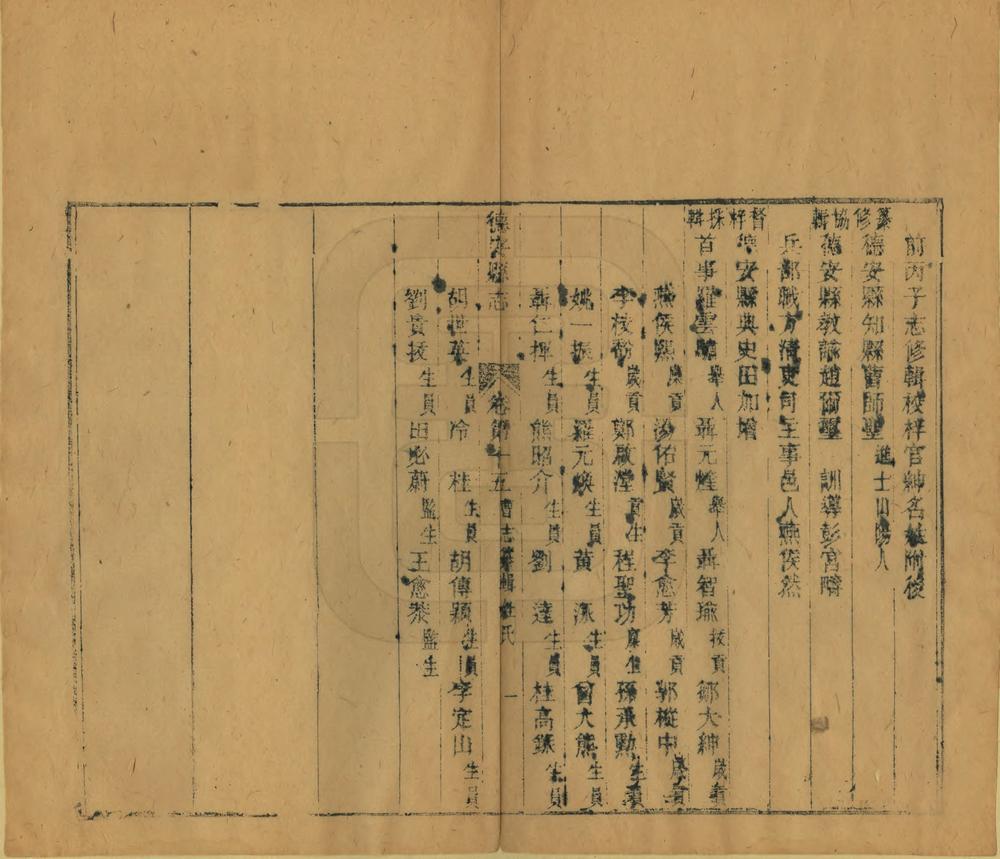 前丙子志修輯校梓官紳名姓附後
纂修
德安縣知縣曹師聖 進士山陽人
協輯
德安縣教諭趙爾璽 訓導彭宮疇
兵部職方清吏司主事邑人燕侯然
督梓
德安縣典史田加增
採輯
首事羅雲 舉人 聶元煃 舉人 聶智瑜 拔貢 鄒大紳 歲貢
燕侯熙 廩貢 湯佑賢 歲貢 李愈芳 歲貢 郭從中 歲貢
李枝 歲貢 鄭啟瀅 貢生 程聖功 廩生 孫承勲 生員
姚一振 生員 羅元煥 生員 黃泳 生員 曾大熊 生員
聶仁揮 生員 熊昭介 生員 劉達 生員 桂高 生員
德安縣志 卷第十五 曹志纂輯姓氏 一
胡世英 生員 冷桂 生員 胡傳穎 生員 李定山 生員
劉貴拔 生員 田必蔚 監生 王愈黍 監生